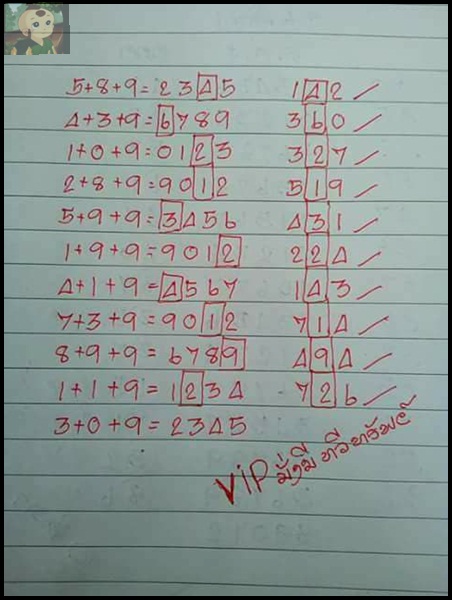 5+8+9=2345 142
4+3+9=6789 360
1+0+9=0123 327
2+8+9=9012 519
5+9+9=3456 431
1+9+9=9012 224
4+1+9=4567 143
7+3+9=9012 714
8+9+9=6789 494
1+1+9=1234 726
3+0+9=2345
VIP ມັ່ງມີ ທະວີຊັບ